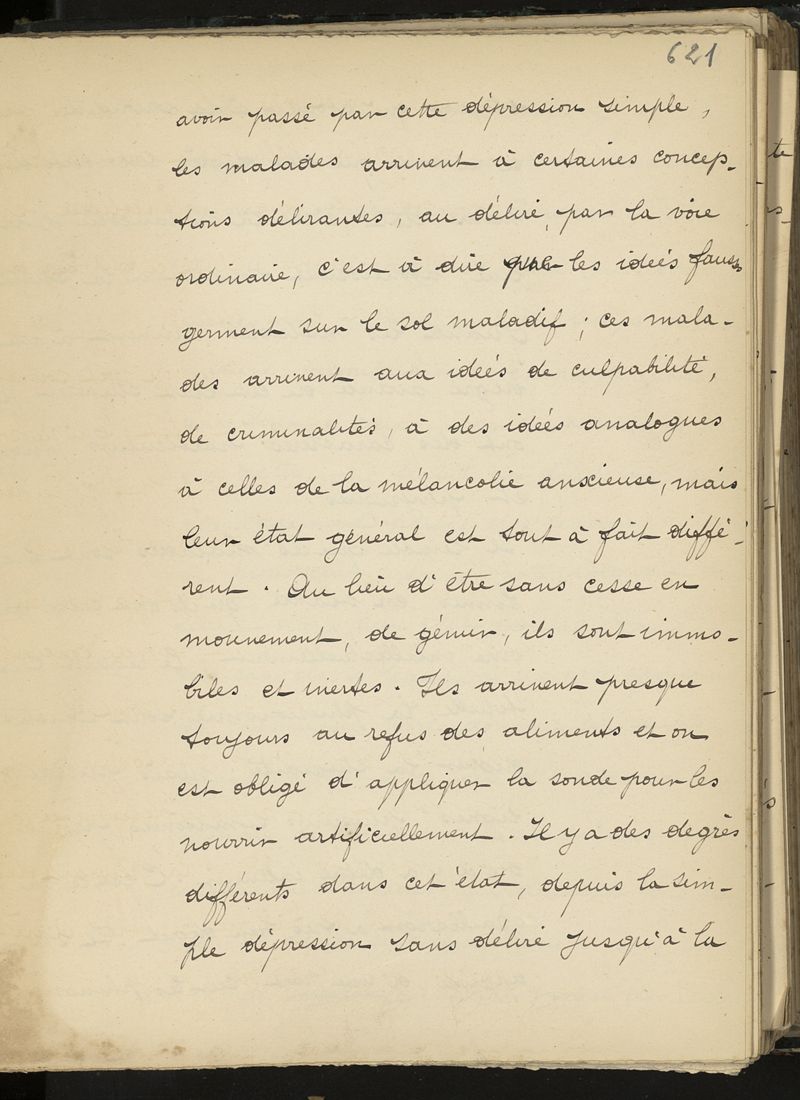 621
avoir passé par cette dépression simple,
les malades arrivent à certaines concep-
tions délirantes, au délire, par la voie
ordinaire, c'est à dire que les idées fausses
germent sur le sol maladif ; ces mala-
des arrivent aux idées de culpabilité,
de criminalités, à des idées analogues
à celles de la mélancolie anxieuse, mais
leur état général est tout à fait diffé-
rent. Au lieu d'être sans cesse en
mouvement, de gémir, ils sont immo-
biles et inertes. Ils arrivent presque
toujours au refus des aliments et on
est obligé d'appliquer la sonde pour les
nourrir artificiellement. Il y a des degrés
différents dans cet état, depuis la sim-
ple dépression sans délire jusqu'à la
te
s-
s